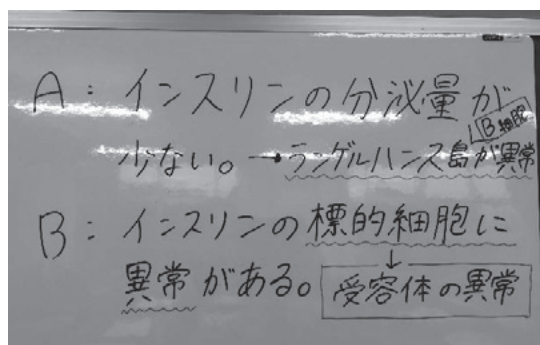 A：インスリンの分泌量が
B細胞
少ない。→ランゲルハンス島が異常
B：インスリンの標的細胞に
↓
異常がある。受容体の異常